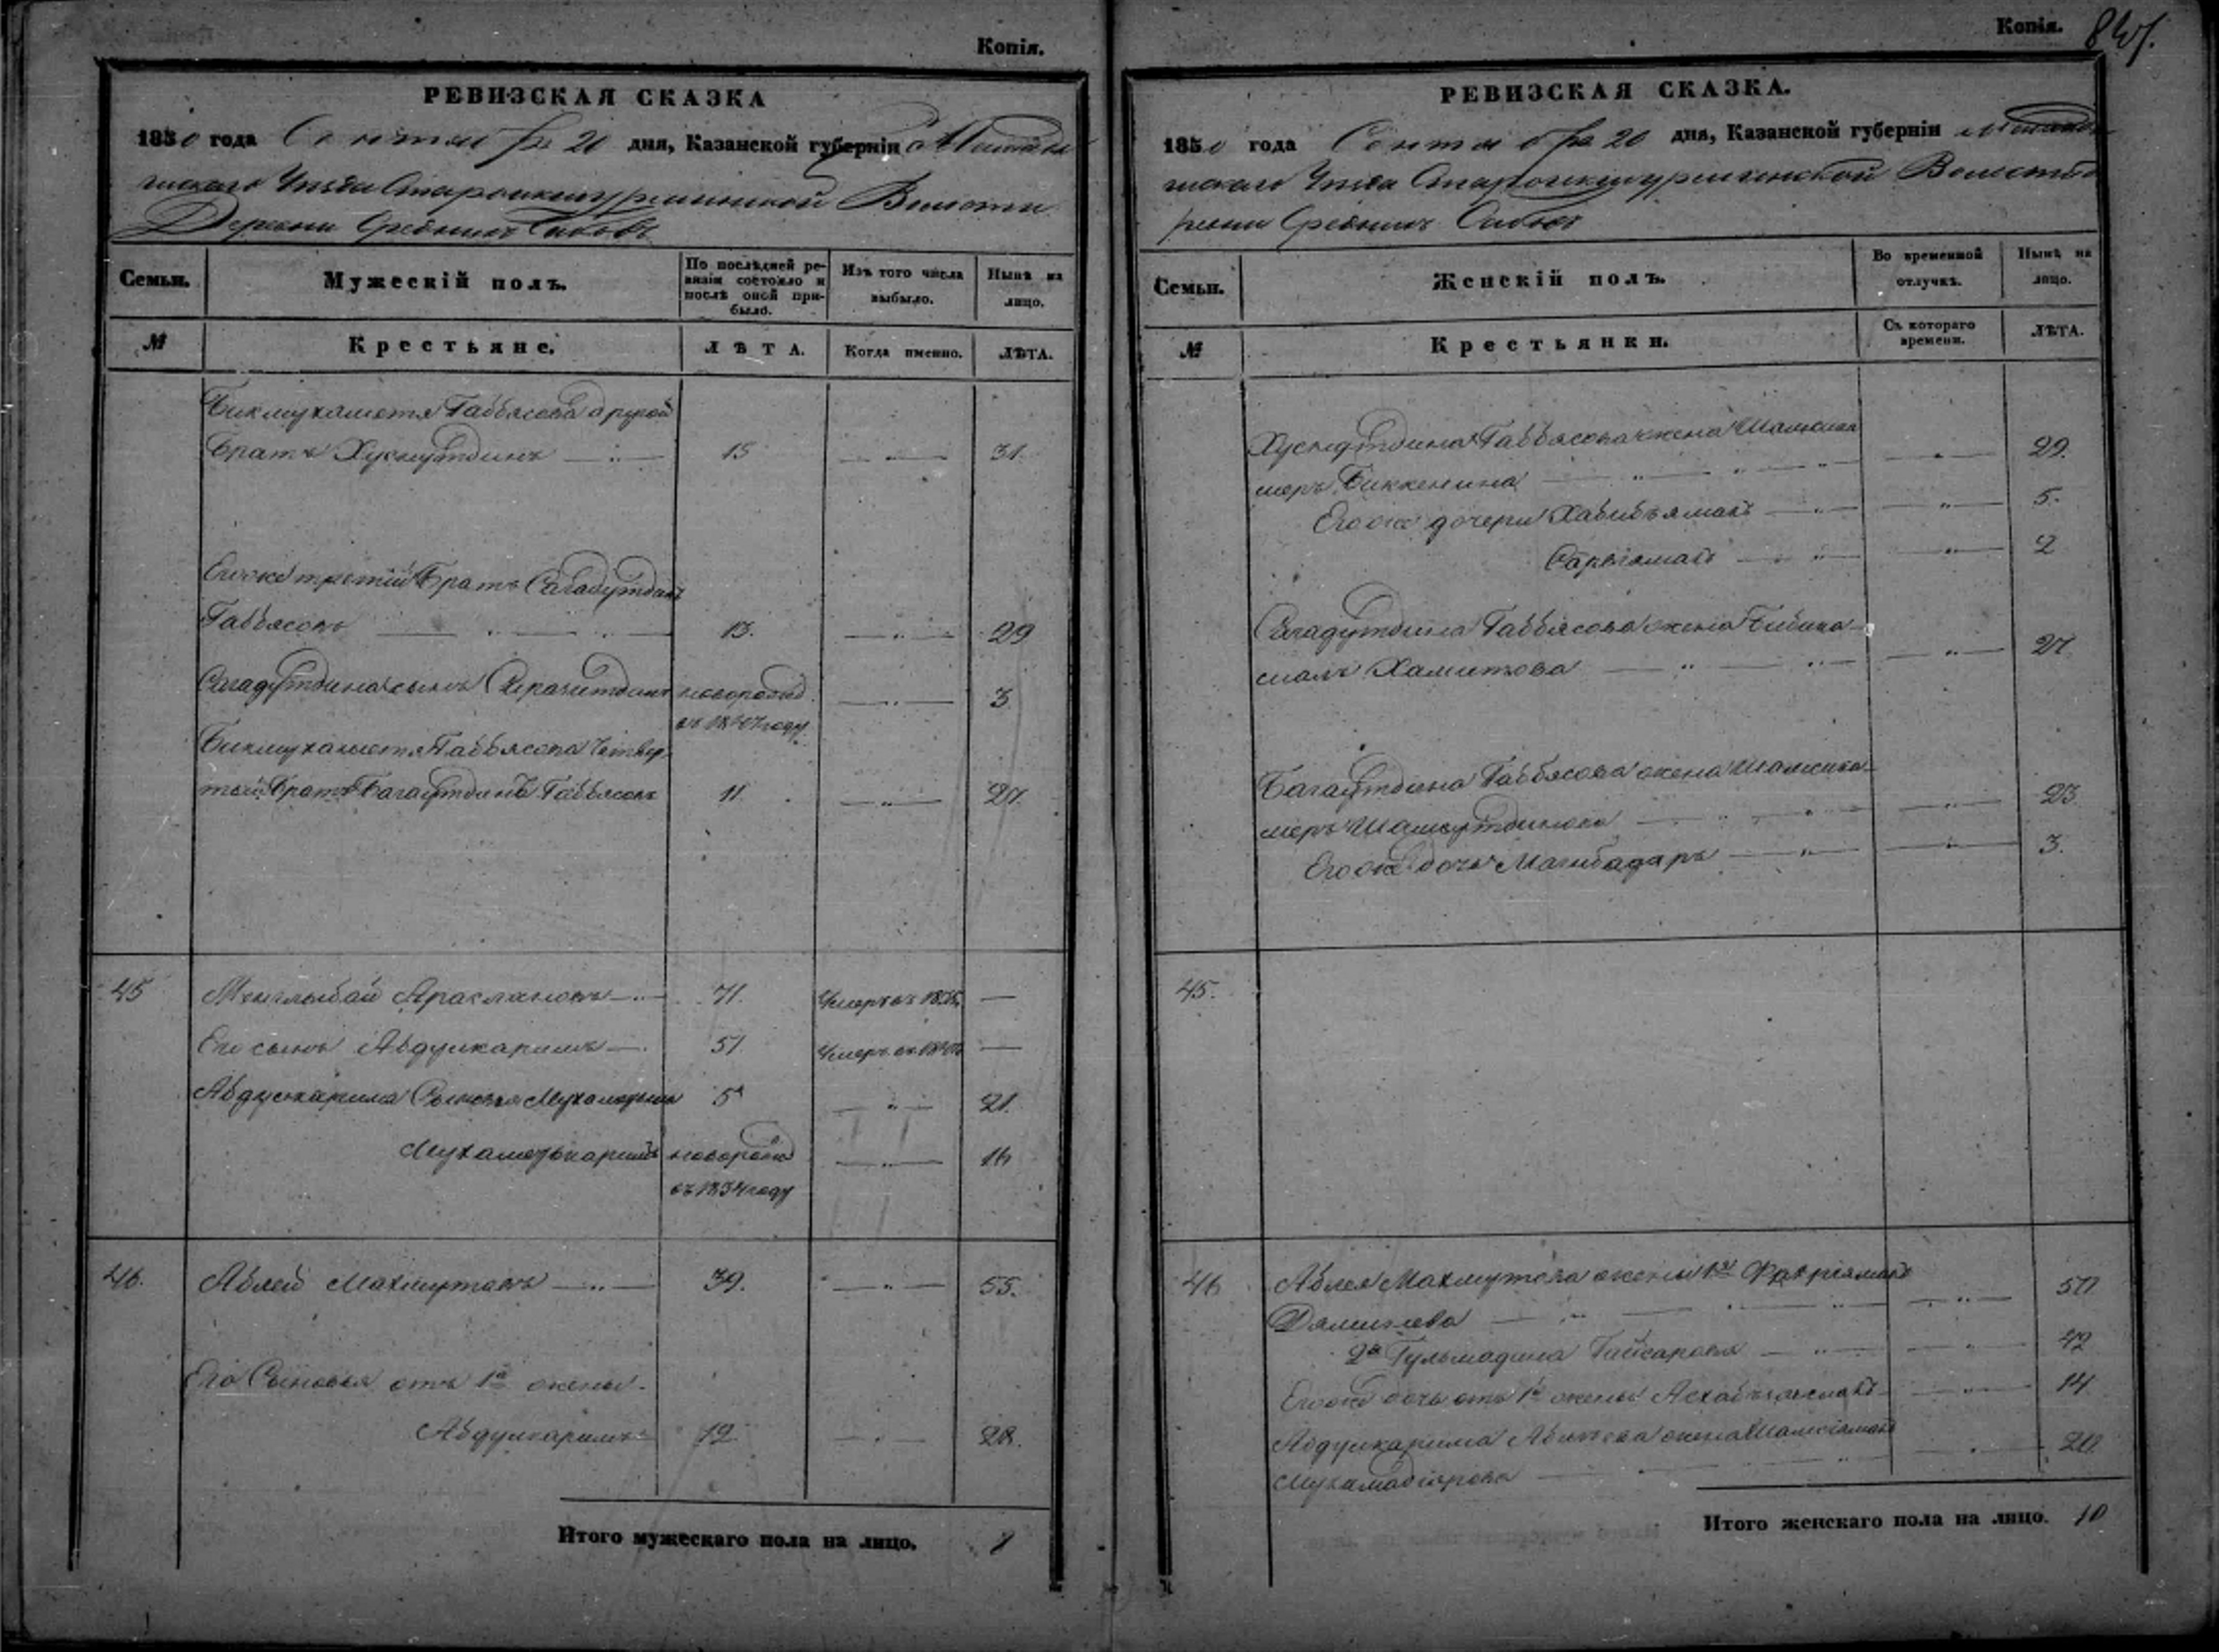 Копія.
РЕВИЗСКАЯ СКАЗКА
1850 года Сентября 20 дня, Казанской губерніи Мамадыш
скаго Уѣзда Волости
Деревни Среднихъ
Семьи.
Мужескій полъ.
По послѣдней ре-
визіи состояло и
послѣ оной при-
было.
Изъ того числа
выбыло.
Нынѣ на
лицо.
№
Крестьяне.
ЛѢТА.
Когда именно.
ЛѢТА.
Бикмухаметя Габбясова другой
братъ Хуснутдинъ 15 31.
Егоже третій братъ Сагадутдинъ
Габбясовъ 13. 29
Сагадутдина сынъ Сиразитдинъ новорожд. 3
въ 1847 году
Бикмухаметя Габбясова четвер
тый братъ Багаутдинъ Габбясовъ 11. 27.
45 Менглыбай Араслановъ 71. Умеръ въ —
Его сынъ Абдулкаримъ 51. Умеръ въ —
Абдулкарима Сыновья 5 21.
Мухаметькаримъ новорожд 16
въ 1834 году
46. Аблей Махмутовъ 39. 55.
Его Сыновья отъ 1й жены
Абдулкаримъ 12 28.
Итого мужескаго пола на лицо. 8
Копія.
РЕВИЗСКАЯ СКАЗКА.
1850 года Сентября 20 дня, Казанской губерніи Мамадыш
скаго Уѣзда Волости Де
ревни Среднихъ
Семьи.
Женскій полъ.
Во временной
отлучкѣ.
Нынѣ на
лицо.
№
Крестьянки.
Съ котораго
времени.
ЛѢТА.
Хуснутдина Габбясова жена Шамсика
меръ Биккенина 29.
Егоже дочери Хабибъямалъ 5.
Сарвіямалъ 2
Сагадутдина Габбясова жена Бибика
малъ Хамитова 27
Багаутдина Габбясова жена Шамсика
меръ Шамсутдинова 23
Егоже дочь Магибадаръ 3.
45.
46 Аблея Махмутова жены 1я Фахріямалъ
50
2я Гульмадина 42
Егоже дочь отъ 1й жены 14
Абдулкарима Аблеева жена Шамсіямалъ 20
Мухамадіярова
Итого женскаго пола на лицо. 10